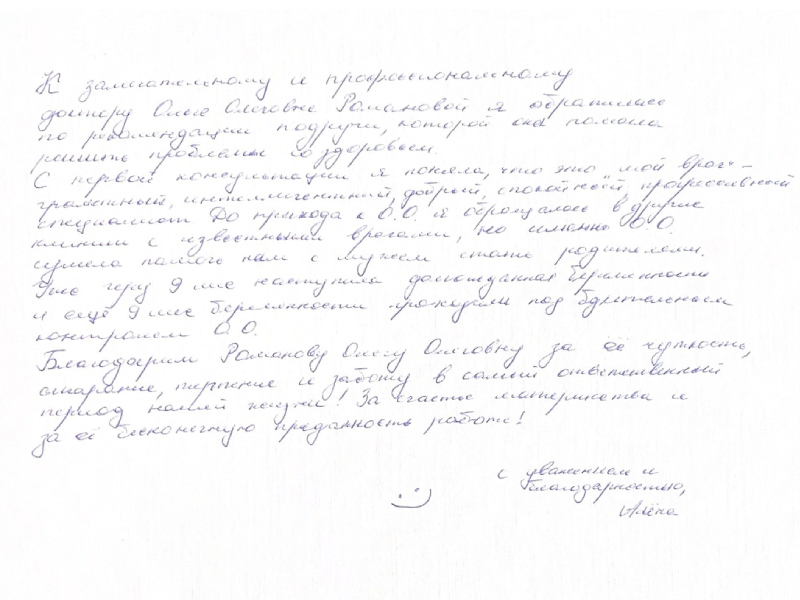 К замечательному и профессиональному
доктору Ольге Олеговне Романовой я обратилась
по рекомендации подруги, которой она помогла
решить проблемы со здоровьем.
С первой консультации я поняла, что это "мой врач" –
грамотный, интеллигентный, добрый, спокойный, прогрессивный
специалист. До прихода к О.О. я обращалась в другие
клиники с известными врачами, но именно О.О.
сумела помочь нам с мужем стать родителями.
Уже через 9 мес наступила долгожданная беременность
и ещё 9 мес беременности проходили под бдительным
контролем О.О.
Благодарим Романову Ольгу Олеговну за её чуткость,
старание, терпение и заботу в самый ответственный
период нашей жизни! За счастье материнства и
за её бесконечную преданность работе!
с уважением и
благодарностью,
Алёна